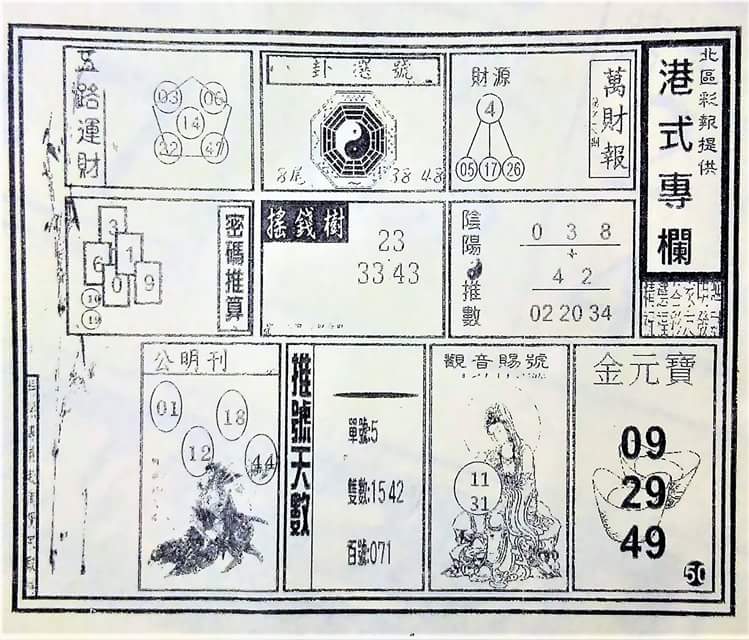 北區彩報提供
港式專欄
萬財報
財源
4
05 17 26
八卦選號
8尾
38 48
五路運財
03 06
14
22 47
陰陽推數
0 3 8
+
4 2
02 20 34
搖錢樹
23
33 43
密碼推算
3
1
6
0 9
10
19
金元寶
09
29
49
50
觀音賜號
11
31
推號天數
單號:5
雙數:15 42
百號:071
公明刊
01 18
12 44